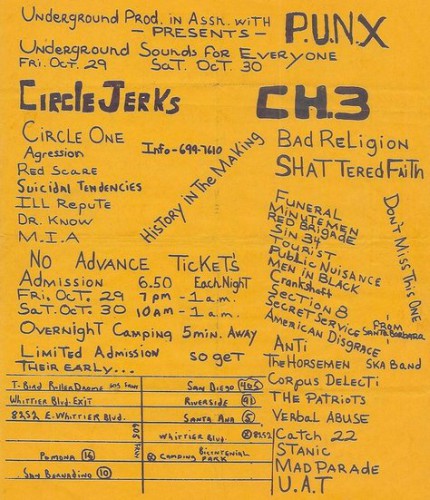 Underground Prod. in Assn. with P.U.N.X
— PRESENTS —
Underground Sounds for Everyone
Fri. Oct. 29 Sat. Oct. 30
CIRCLE JERKS
CIRCLE ONE
Agression
Red Scare
Suicidal Tendencies
ILL Repute
DR. Know
M.I.A
Info-699-7610
History in The Making
CH.3
Bad Religion
SHATTered FaiTh
Funeral
Minutemen
Red Brigade
Sin 34
Tourist
Public Nuisance
Men in Black
Crankshaft
Section 8
Secret Service
American Disgrace
From Santa Barbara
Don't Miss This One
Anti
The Horsemen Ska Band
Corpus Delecti
The Patriots
Verbal Abuse
Catch 22
Stanic
Mad Parade
U.A.T
No Advance Tickets
Admission 6.50 Each Night
Fri. Oct. 29 7pm - 1a.m.
Sat. Oct. 30 10am - 1a.m.
Overnight Camping 5min. Away
Limited Admission So get
Their early...
T-Bird RollerDrome 605 Frwy San Diego 405
Whittier Blvd. Exit Riverside 91
8252 E. Whittier Blvd. Santa Ana 5
605 Frwy
Whittier Blvd. 8252
Pomona Camping Bicentennial Park
San Bernadino 10